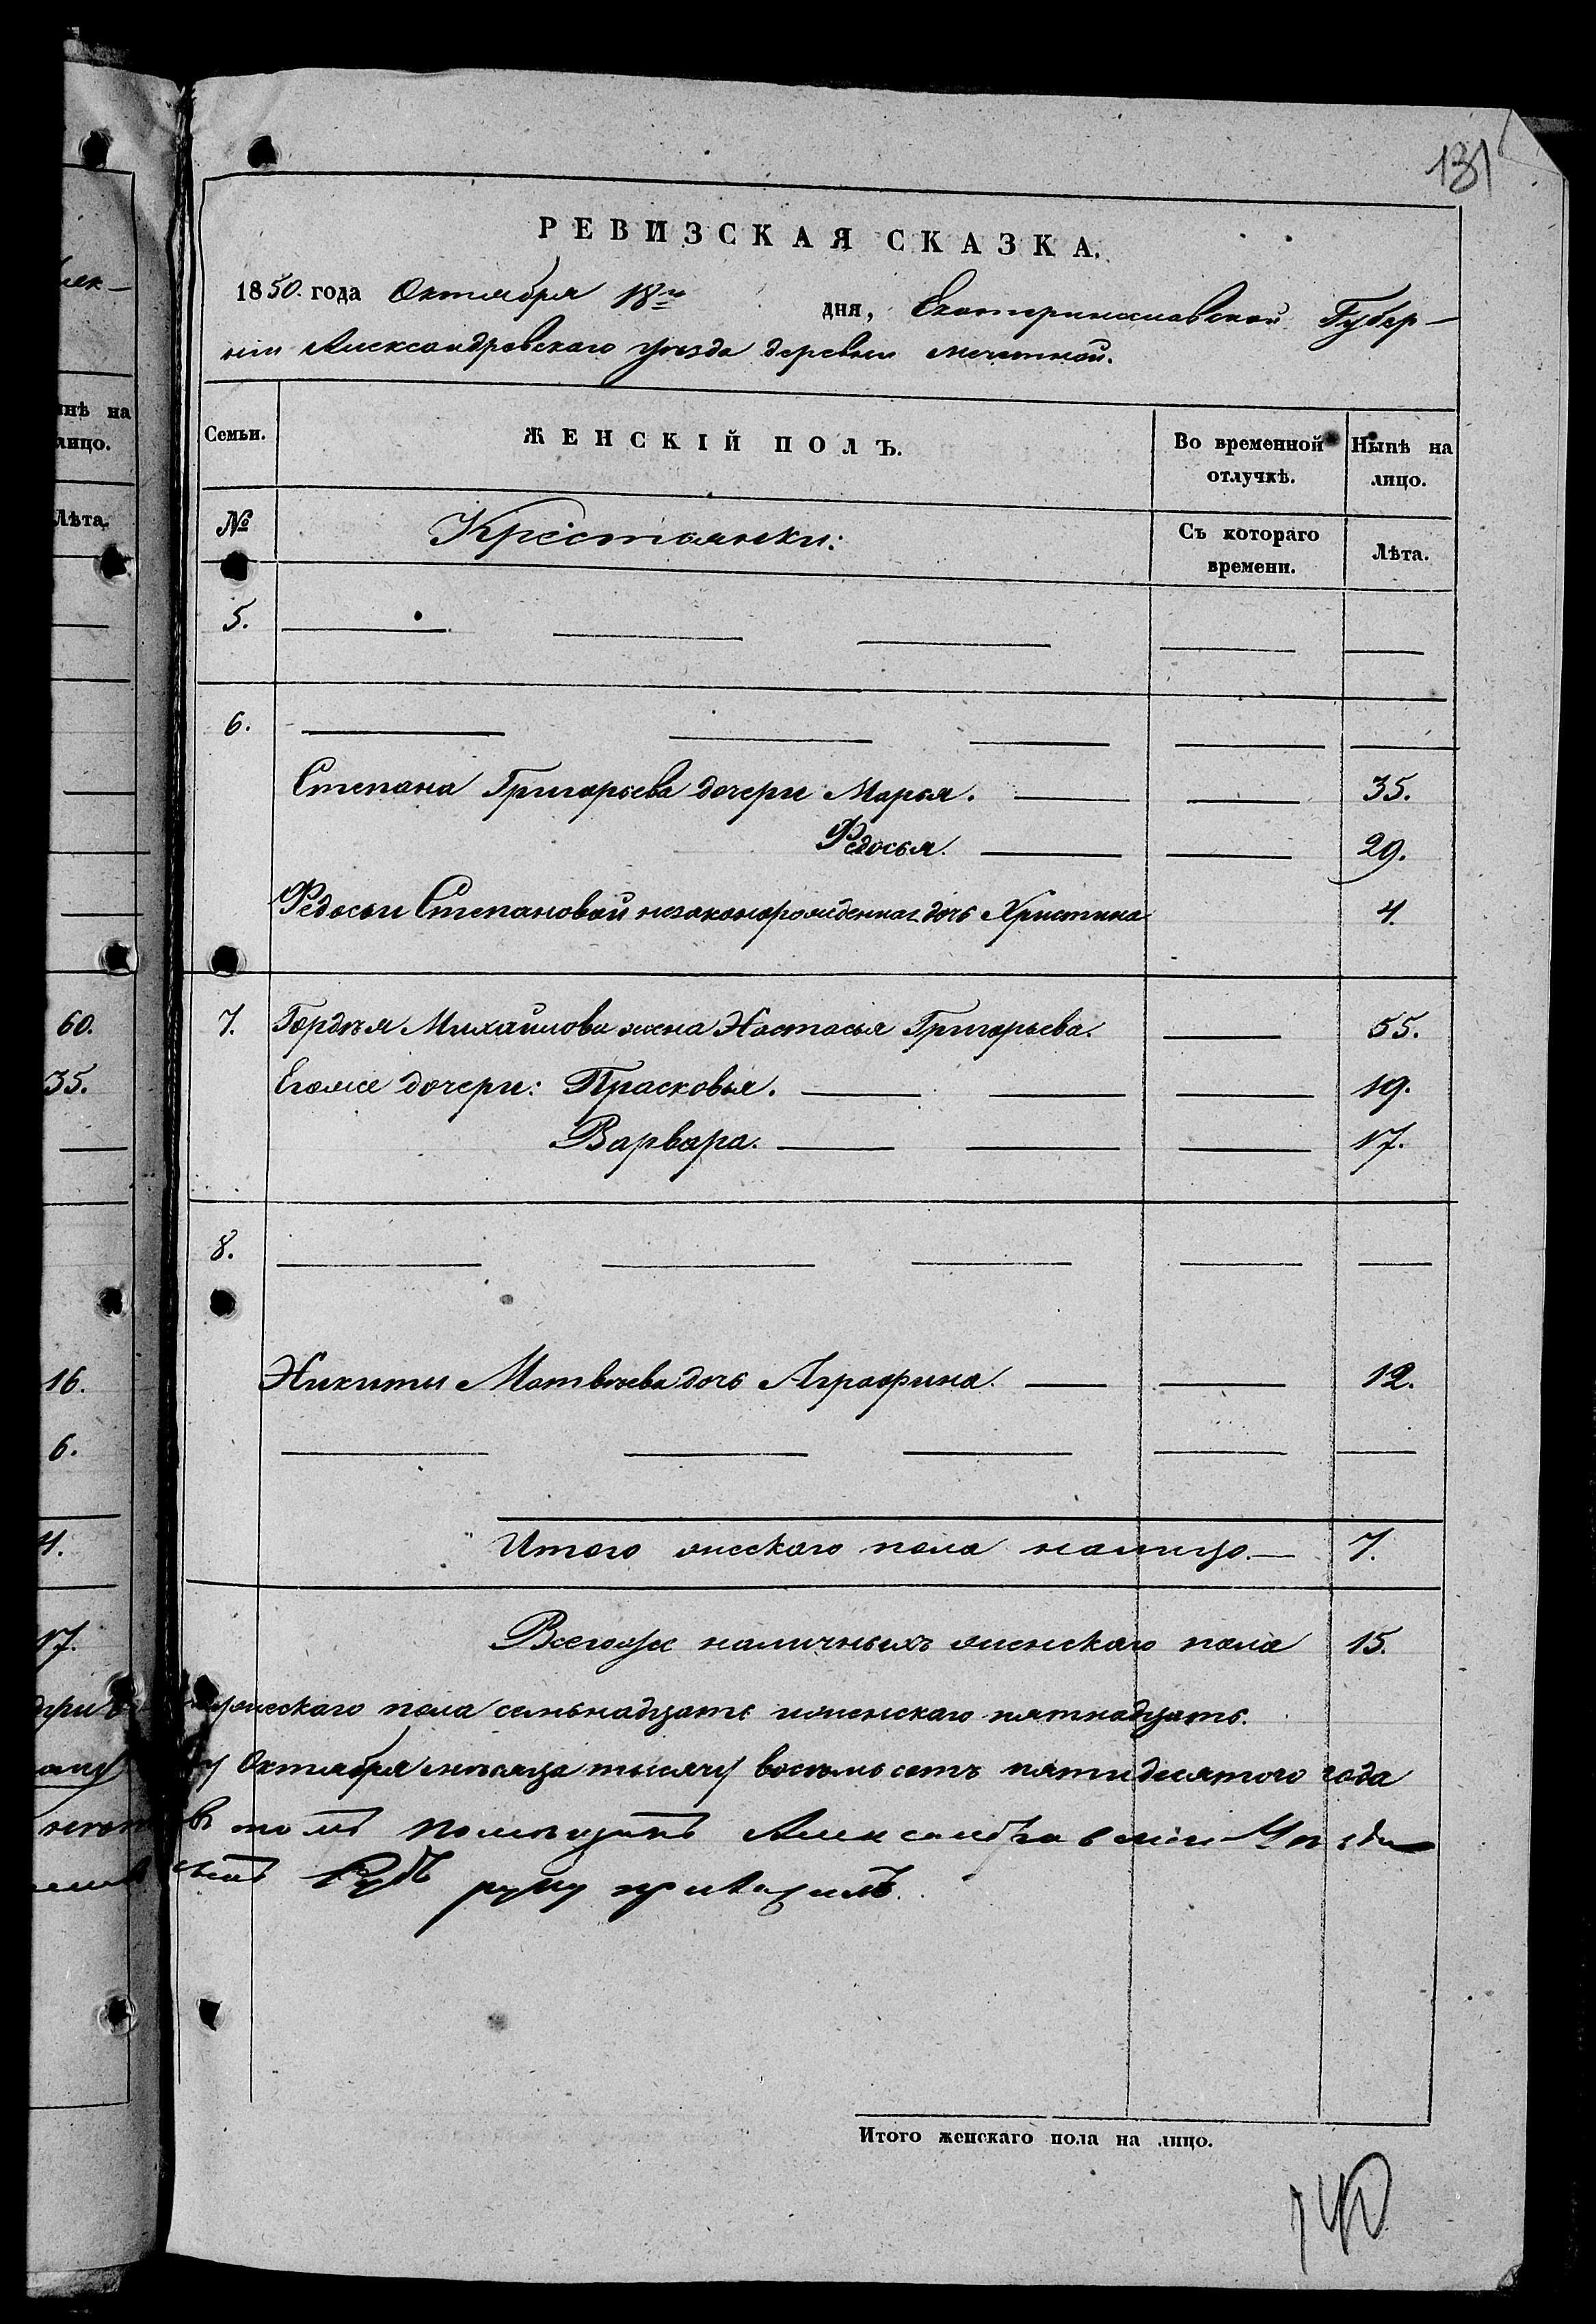 131
РЕВИЗСКАЯ СКАЗКА.
1850. года Октября 18го дня, Екатеринославской Губер-
ніи Александровскаго уѣзда деревни Мечетной.
Семьи. ЖЕНСКІЙ ПОЛЪ. Во временной отлучкѣ. Нынѣ на лицо.
№ Крестьянки: Съ котораго времени. Лѣта.
5.
6.
Степана Григорьева дочери Марья. 35.
Федосья. 29.
Федосьи Степановой незаконорожденная дочь Христина 4.
7. Гордѣя Михайлова жена Настасья Григорьева. 55.
Егоже дочери: Прасковья. 19.
Варвара. 17.
8.
Никиты Матвѣева дочь Аграфина. 12.
Итого женскаго пола налицо. 7.
Всегоже наличныхъ женскаго пола 15.
пола семьнадцать иженскаго пятнадцать.
Октября мѣсяца тысячу восемьсотъ пятидесятого года
въ томъ помѣщикъ
руку приложилъ.
Итого женскаго пола на лицо.
740
нѣ на
лицо.
Лѣта.
60.
35.
16.
6.
4.
17.